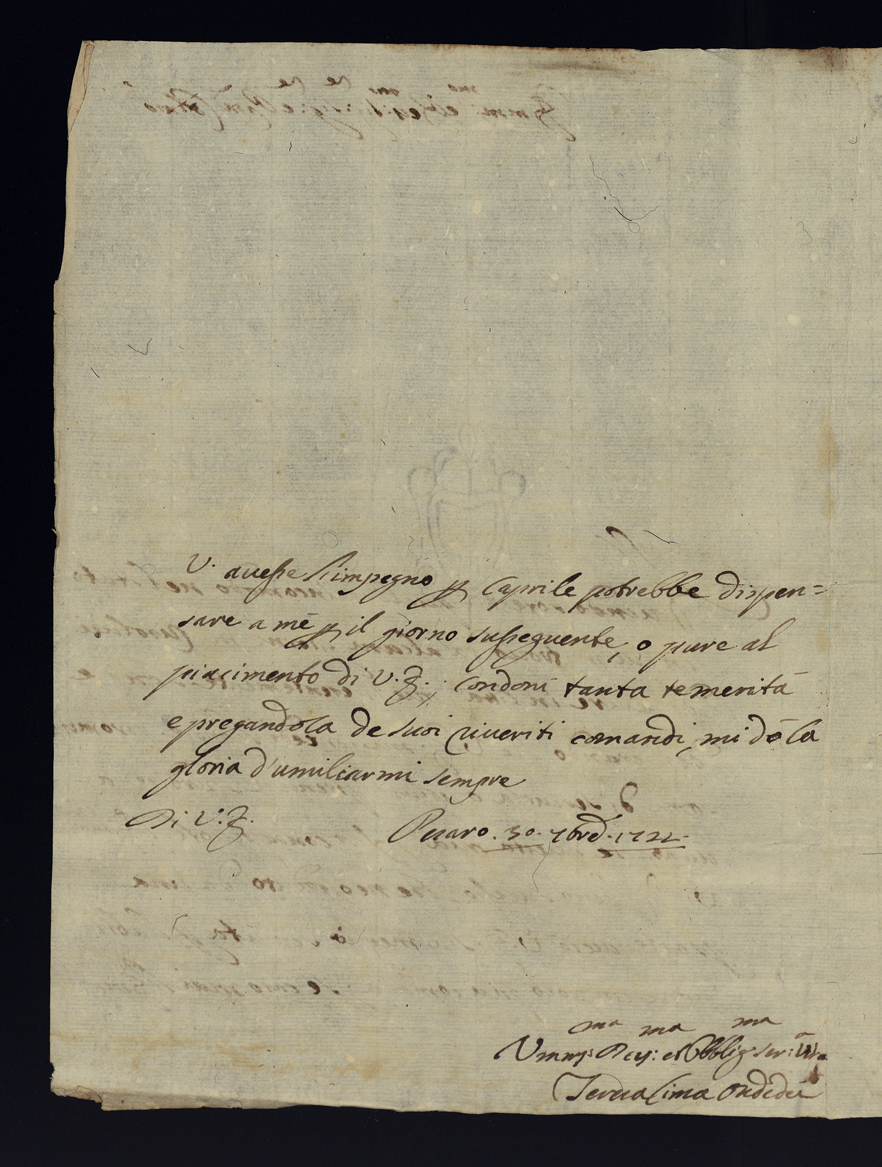 V. avesse l'impegno p Caprile potrebbe dispen=
sare a mè p il giorno susseguente, o pure al
piacimento di V. Condoni tanta temerità
e pregandola de suoi riveriti comandi, mi dò la
gloria d'umiliarmi sempre
Di V.
Pesaro. 30. 7bre. 1722.
ma ma ma
Umm: Dev: et Obblig: Ser:
Teresa Cima Ondedei